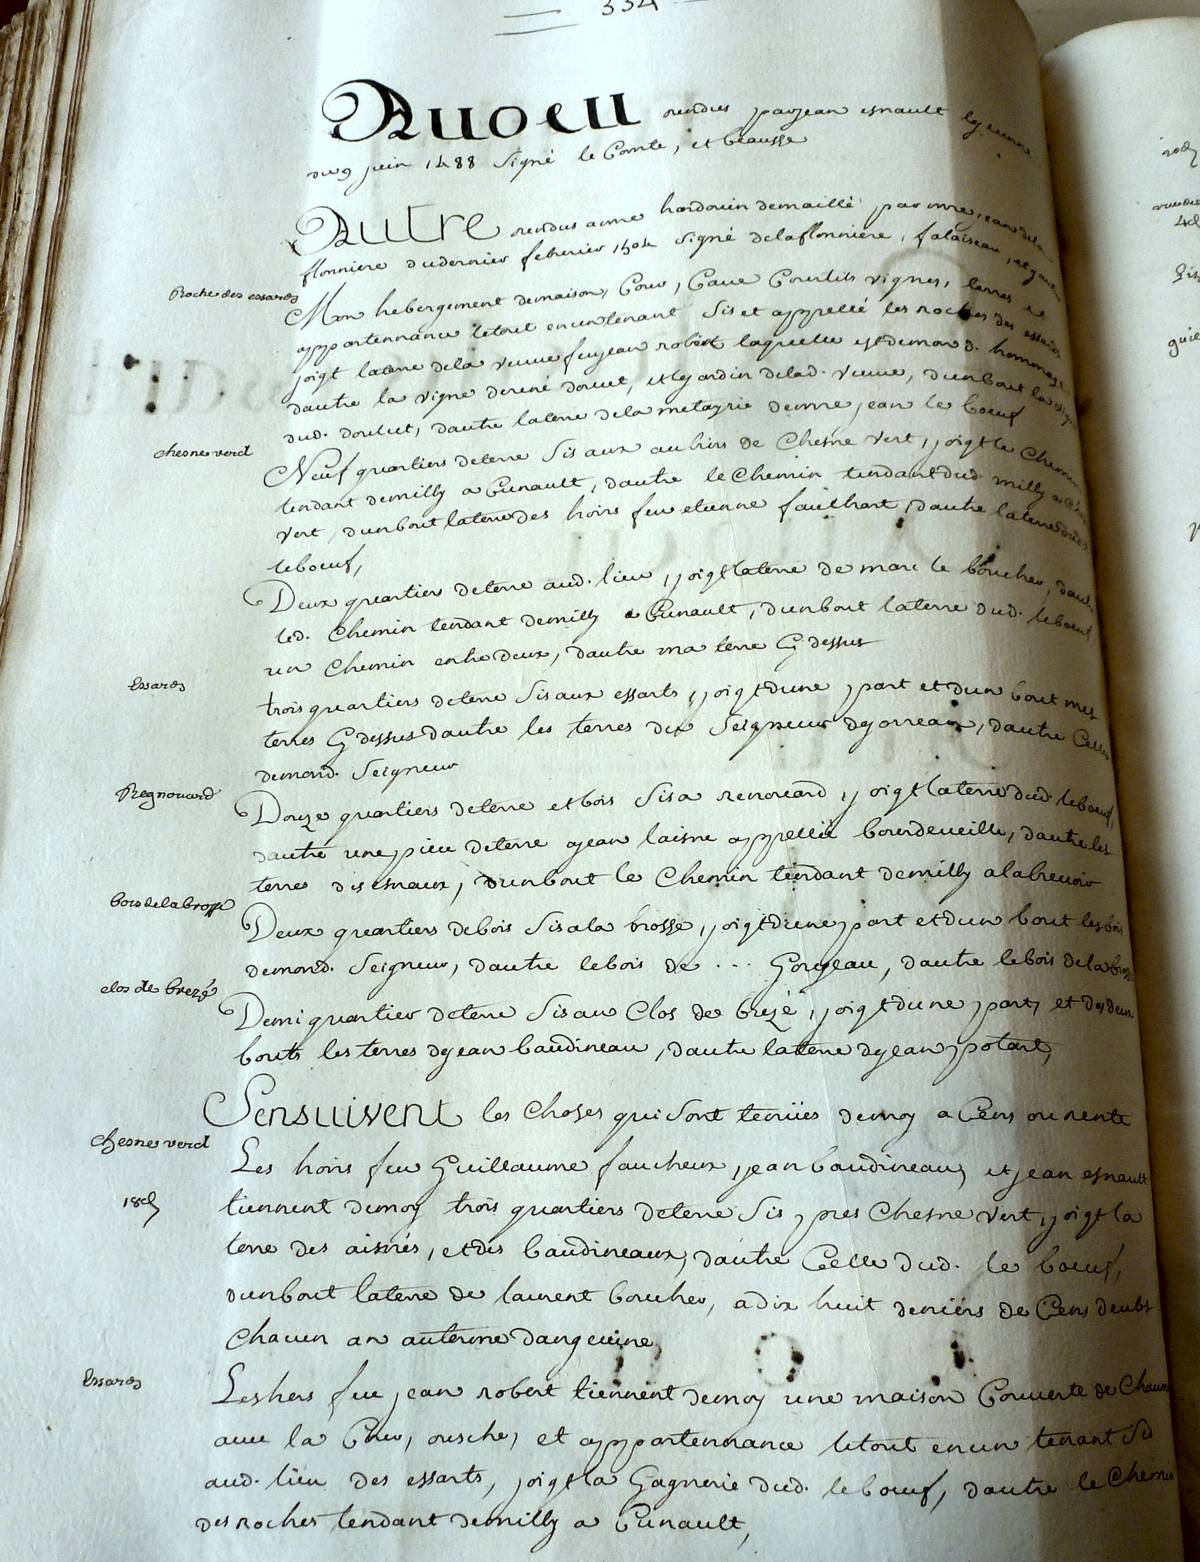 334
Aucuu rendus par jean esnault le jeune
du 9 juin 1488 Signé le Comte, et beausse
Autre rendus a mre hardouin demaillé par mre jean dela
flonniere du dernier febvrier 1504 signé delaflonniere, falaiseau, et
Roche des essards
Mon hebergement demaison, Cour, Cave Courtils vignes, terres et
appartennance letout enun tenant Sis et appellé les roches des essards
joigt laterre dela veuve feu jean robert laquelle est demond. hommage
dautre la vigne derené doucet, et le jardin delad. veuve, dunbout la vigne
dud. doulcet, dautre laterre dela metayrie demre jean le boeuf
chesne verd
Neuf quartiers deterre Sis aux au lieu de Chesne vert, joigt le Chemin
tendant demilly a Cunault, dautre le Chemin tendant dud. milly a Chesne
vert, dunbout laterre des hoirs feu etienne fauchart, dautre laterre dud.
leboeuf,
Deux quartiers deterre aud. lieu, joigt laterre de marc le boucher, dautre
led. Chemin tendant demilly a Cunault, dunbout laterre dud. leboeuf
un Chemin entre deux, dautre ma terre Cy dessus
Essards
trois quartiers deterre Sis aux essarts, joigt dune part et dun bout mes
terres Cy dessus dautre les terres du Seigneur dejorreau, dautre Celles
demond. Seigneur
Regnouard
Douze quartiers deterre et bois Sis a renouard, joigt laterre dud. leboeuf,
dautre une piece deterre a jean laisne appellée bourdeveille, dautre les
terres des esnaux, dunbout le Chemin tendant demilly alabreuvoir
bois de la brosse
Deux quartiers debois Sis ala brosse, joigt dune part et dun bout les bois
demond. Seigneur, dautre lebois de ... Goujeau, dautre lebois dela brosse
clos de brezé
Demi quartier deterre Sis au Clos de brezé, joigt dune part, et des deux
bouts les terres de jean baudineau, dautre laterre de jean potart,
Sensuivent les Choses qui Sont tenües demoy a Cens ou rente
Chesne verd
Les hoirs feu Guillaume faucheux, jean baudineau, et jean esnault
18d
tiennent demoy trois quartiers deterre Sis pres Chesne vert, joigt la
terre des aisnés, et des baudineaux, dautre Celle dud. le boeuf,
dunbout laterre de laurent boucher, adix huit deniers de Cens deubs
Chacun an auterme dangevine
Essards
Les hers feu jean robert tiennent demoy une maison Couverte de Chaume
avec la Cour, ousche, et appartennance letout enun tenant Sis
aud. lieu des essarts, joigt la Gagnerie dud. leboeuf, dautre le Chemin
des roches tendant demilly a Cunault,